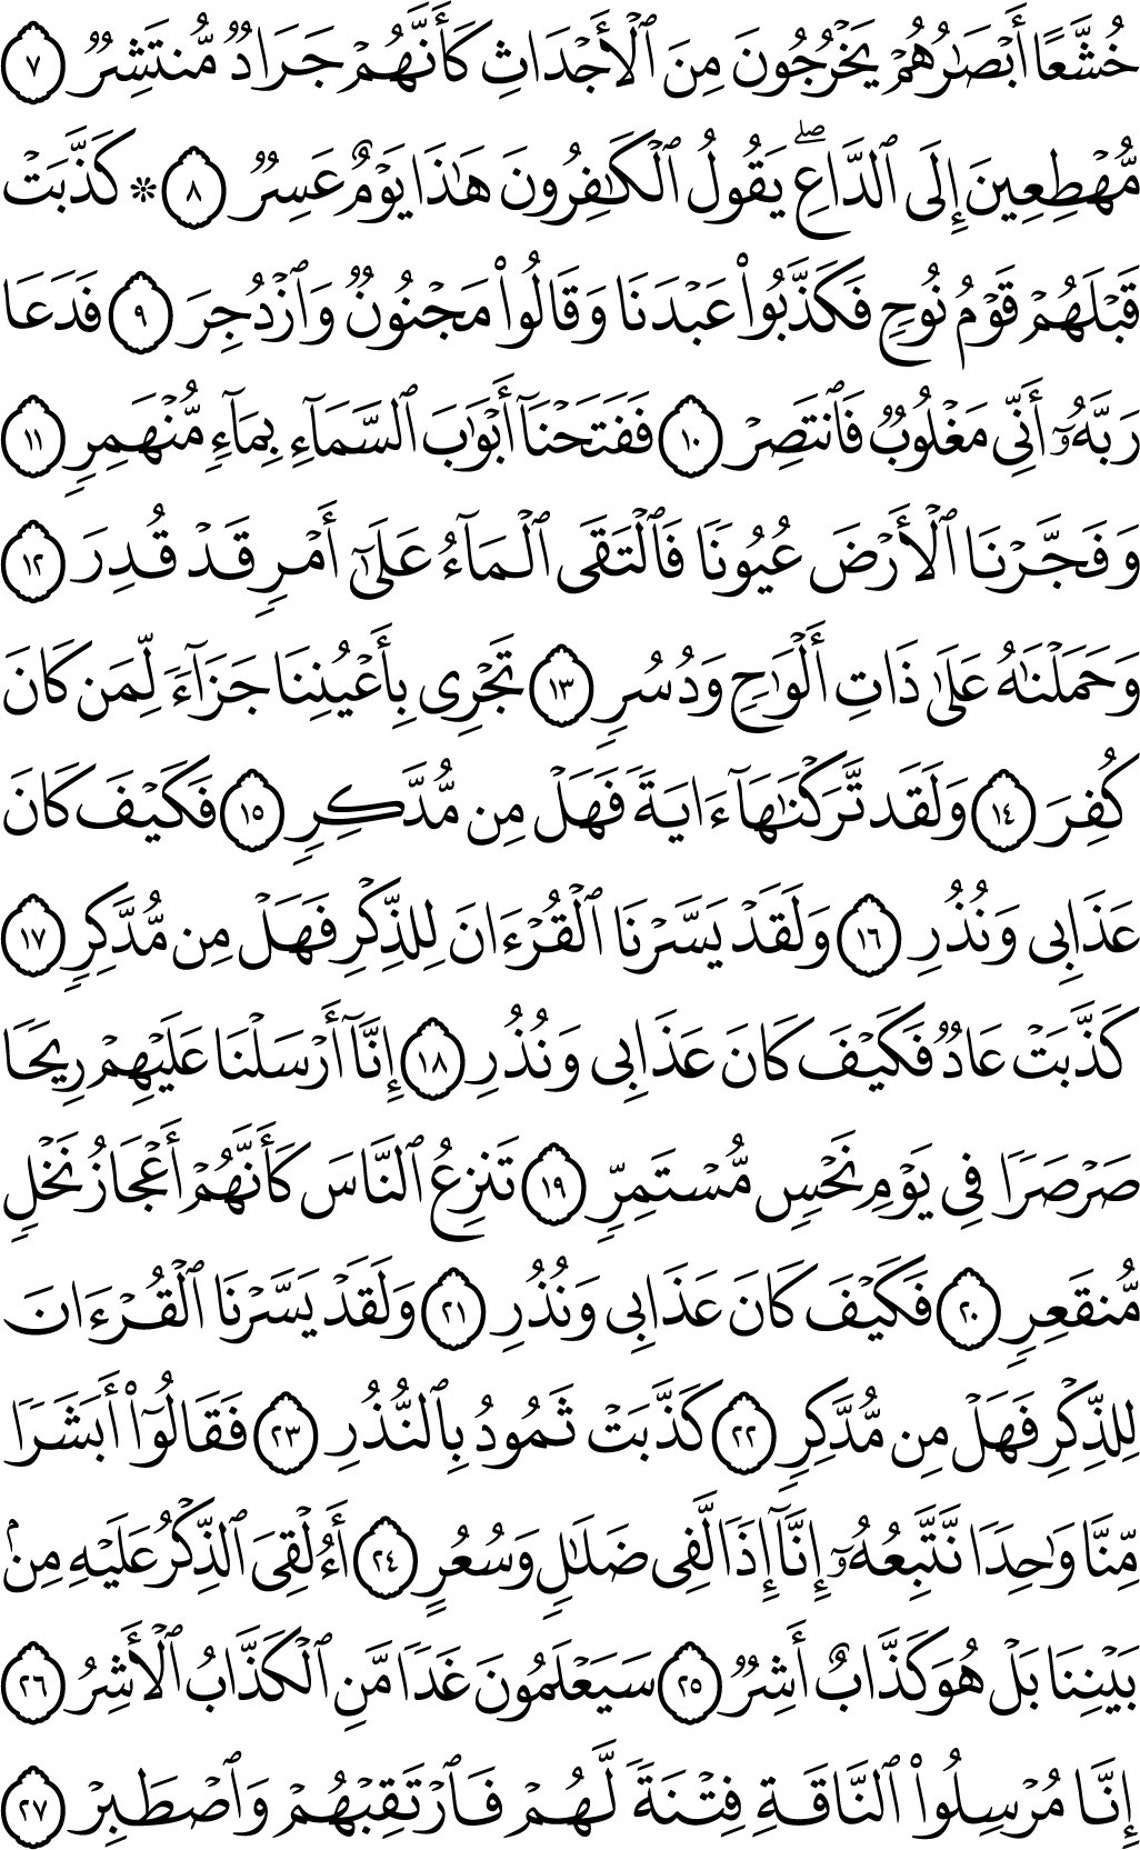 خُشَّعًا أَبْصَٰرُهُمْ يَخْرُجُونَ مِنَ ٱلْأَجْدَاثِ كَأَنَّهُمْ جَرَادٌ مُّنتَشِرٌ ٧
مُّهْطِعِينَ إِلَى ٱلدَّاعِ ۖ يَقُولُ ٱلْكَٰفِرُونَ هَٰذَا يَوْمٌ عَسِرٌ ٨ * كَذَّبَتْ
قَبْلَهُمْ قَوْمُ نُوحٍ فَكَذَّبُوا۟ عَبْدَنَا وَقَالُوا۟ مَجْنُونٌ وَٱزْدُجِرَ ٩ فَدَعَا
رَبَّهُۥٓ أَنِّى مَغْلُوبٌ فَٱنتَصِرْ ١٠ فَفَتَحْنَآ أَبْوَٰبَ ٱلسَّمَآءِ بِمَآءٍ مُّنْهَمِرٍ ١١
وَفَجَّرْنَا ٱلْأَرْضَ عُيُونًا فَٱلْتَقَى ٱلْمَآءُ عَلَىٰٓ أَمْرٍ قَدْ قُدِرَ ١٢
وَحَمَلْنَٰهُ عَلَىٰ ذَاتِ أَلْوَٰحٍ وَدُسُرٍ ١٣ تَجْرِى بِأَعْيُنِنَا جَزَآءً لِّمَن كَانَ
كُفِرَ ١٤ وَلَقَد تَّرَكْنَٰهَآ ءَايَةً فَهَلْ مِن مُّدَّكِرٍ ١٥ فَكَيْفَ كَانَ
عَذَابِى وَنُذُرِ ١٦ وَلَقَدْ يَسَّرْنَا ٱلْقُرْءَانَ لِلذِّكْرِ فَهَلْ مِن مُّدَّكِرٍ ١٧
كَذَّبَتْ عَادٌ فَكَيْفَ كَانَ عَذَابِى وَنُذُرِ ١٨ إِنَّآ أَرْسَلْنَا عَلَيْهِمْ رِيحًا
صَرْصَرًا فِى يَوْمِ نَحْسٍ مُّسْتَمِرٍّ ١٩ تَنزِعُ ٱلنَّاسَ كَأَنَّهُمْ أَعْجَازُ نَخْلٍ
مُّنقَعِرٍ ٢٠ فَكَيْفَ كَانَ عَذَابِى وَنُذُرِ ٢١ وَلَقَدْ يَسَّرْنَا ٱلْقُرْءَانَ
لِلذِّكْرِ فَهَلْ مِن مُّدَّكِرٍ ٢٢ كَذَّبَتْ ثَمُودُ بِٱلنُّذُرِ ٢٣ فَقَالُوٓا۟ أَبَشَرًا
مِّنَّا وَٰحِدًا نَّتَّبِعُهُۥٓ إِنَّآ إِذًا لَّفِى ضَلَٰلٍ وَسُعُرٍ ٢٤ أَءُلْقِىَ ٱلذِّكْرُ عَلَيْهِ مِنۢ
بَيْنِنَا بَلْ هُوَ كَذَّابٌ أَشِرٌ ٢٥ سَيَعْلَمُونَ غَدًا مَّنِ ٱلْكَذَّابُ ٱلْأَشِرُ ٢٦
إِنَّا مُرْسِلُوا۟ ٱلنَّاقَةِ فِتْنَةً لَّهُمْ فَٱرْتَقِبْهُمْ وَٱصْطَبِرْ ٢٧